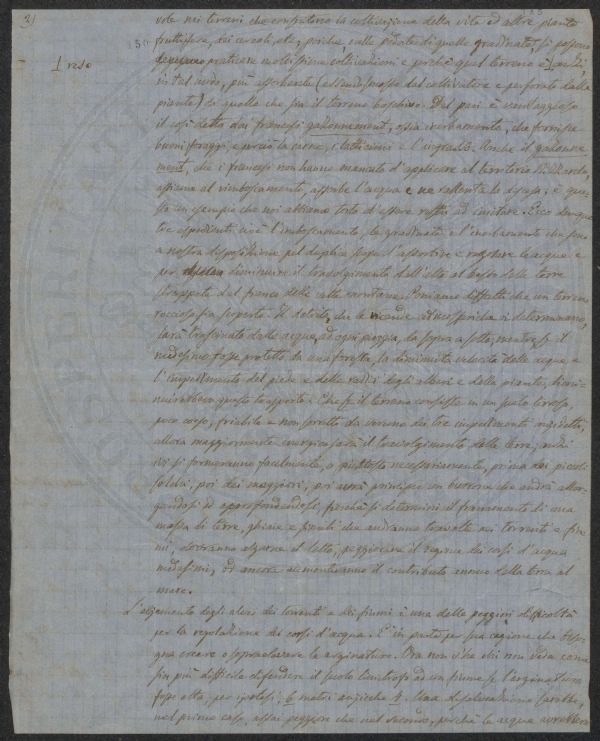 3)
150
⊥ reso
vole nei terreni che confortano la coltivazione della vite ed altre piante
fruttifere, dei cereali, etc, poiché, sulle di quelle gradinate, si possono
praticare moltissime coltivazioni e perché quel terreno è ⊥ 
in tal modo, più assorbente (essendo smosso dal coltivatore e perforato dalle
piante) di quello che sia il terreno boschivo. Del pari è vantaggioso
il così detto dai francesi gazonnement, ossia inerbamento, che fornisce
buoni foraggi, e perciò la carne, i latticinii e l'ingrasso. Anche il gazonne
ment, che i francesi non hanno mancato di applicare al territorio
assieme al rimboscamento, assorbe l'acqua e ne rallenta lo sgrondo; è que-
sto un esempio che noi abbiamo torto d'essere restii ad imitare. Ecco dunque
tre espedienti, cioè l'imboscamento, la gradinata e l'inerbamento che sono
a nostra disposizione pel duplice scopo d'assorbire e rallentare le acque e
per diminuire il travolgimento dall'alto al basso delle terre
strappate dal fianco delle coste montane. Poniamo diffatti che un terreno
roccioso sia scoperto. Il detrito, che le vicende atmosferiche vi determinano,
sarà trascinato dalle acque, ad ogni pioggia, da sopra a sotto, mentre se il
medesimo fosse protetto da una foresta, la diminuita velocità delle acque e
l'impedimento del piede e delle radici degli alberi e delle piante, dimi-
nuirebbero questo trasporto. Che se il terreno consiste in un suolo terroso,
poco coeso, friabile e non protetto da veruno dei tre impedimenti suddetti,
allora maggiormente sarà il travolgimento delle terre; quindi
vi si formeranno facilmente, o piuttosto necessariamente, prima dei piccoli
solchi, poi dei maggiori, poi avrà principio un burrone che andrà allar-
gandosi ed approfondandosi, perché si determini il franamento di una
massa di terre, ghiaie e ciottoli che andranno travolte nei torrenti e fiu-
mi, dovranno alzarne il letto, peggiorare il regime dei corsi d'acqua
medesimi, ed ancora aumenteranno il contributo annuo della terra al
mare.
L'alzamento degli alvei dei torrenti e dei fiumi è una delle peggiori difficoltà
per la regolazione dei corsi d'acqua. È in parte per sua cagione che biso-
gna creare o sopraelevare le arginature. Ora non v'ha chi non veda come
sia più difficile difendere il suolo limitrofo ad un fiume se l'arginatura
fosse alta, per ipotesi, 6 metri anziché 4. Una disalveazione sarebbe,
nel primo caso, assai peggiore che nel secondo, perché le acque avrebbero